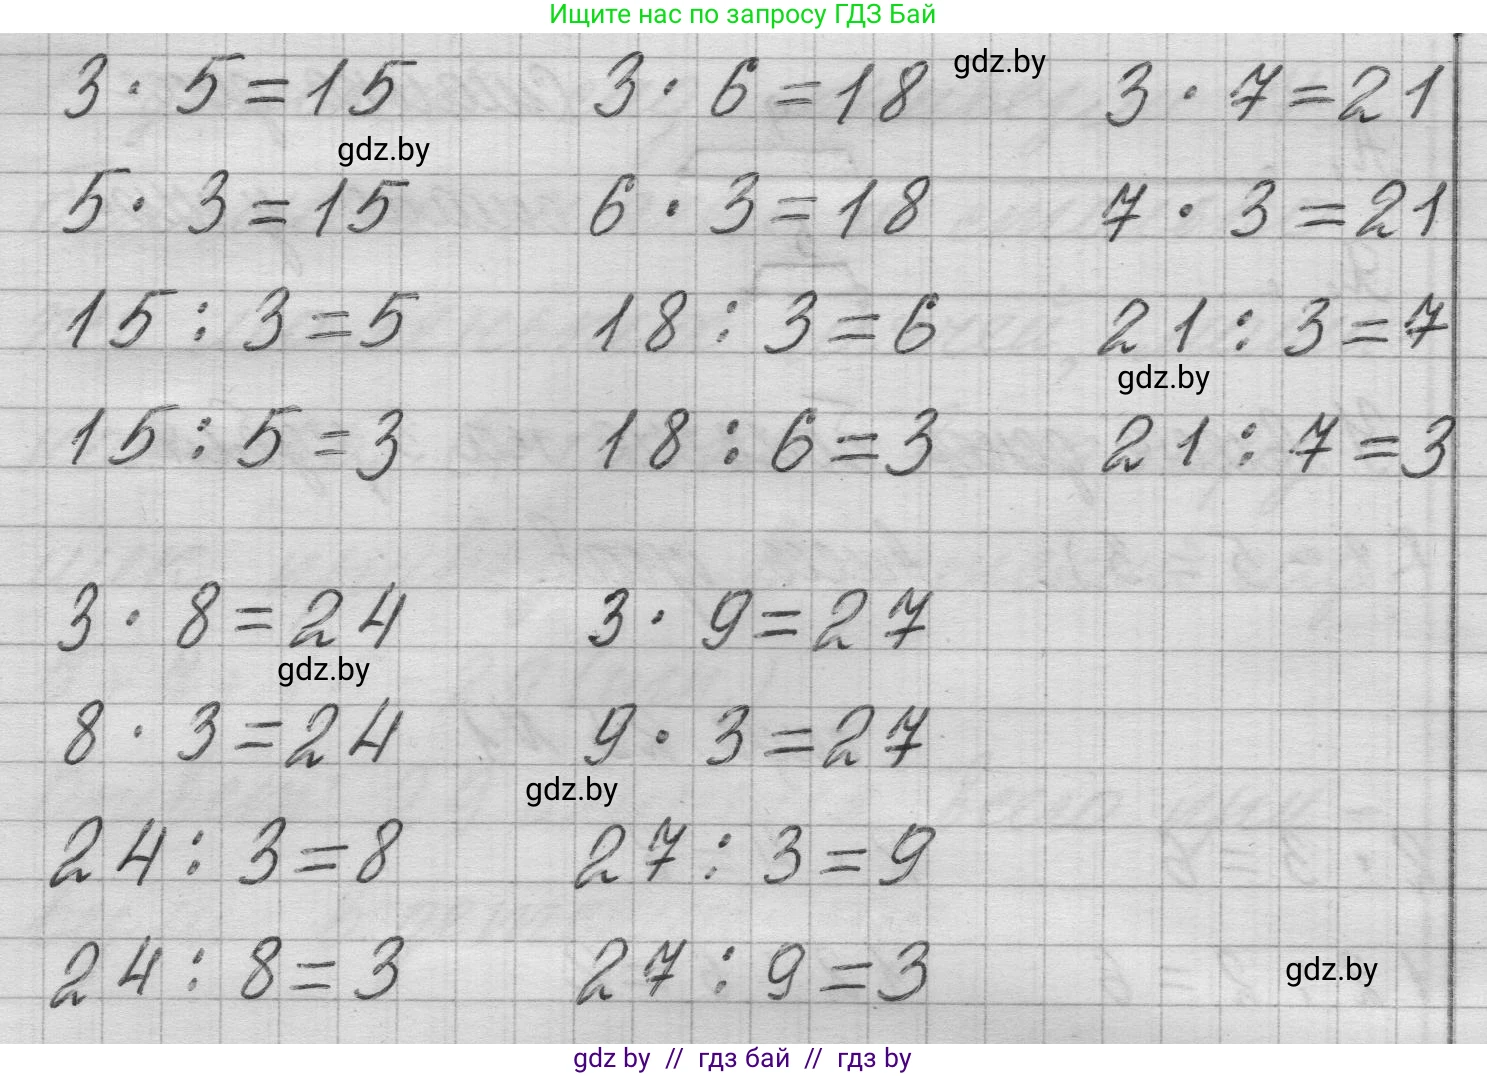 Ищите нас по запросу ГДЗ Бай
3 · 5 = 15 3 · 6 = 18 gdz.by 3 · 7 = 21
gdz.by
5 · 3 = 15 6 · 3 = 18 7 · 3 = 21
15 : 3 = 5 18 : 3 = 6 21 : 3 = 7
gdz.by
15 : 5 = 3 18 : 6 = 3 21 : 7 = 3
3 · 8 = 24 3 · 9 = 27
gdz.by
8 · 3 = 24 9 · 3 = 27
gdz.by
24 : 3 = 8 27 : 3 = 9
24 : 8 = 3 27 : 9 = 3
gdz.by
gdz by // гдз бай // гдз by